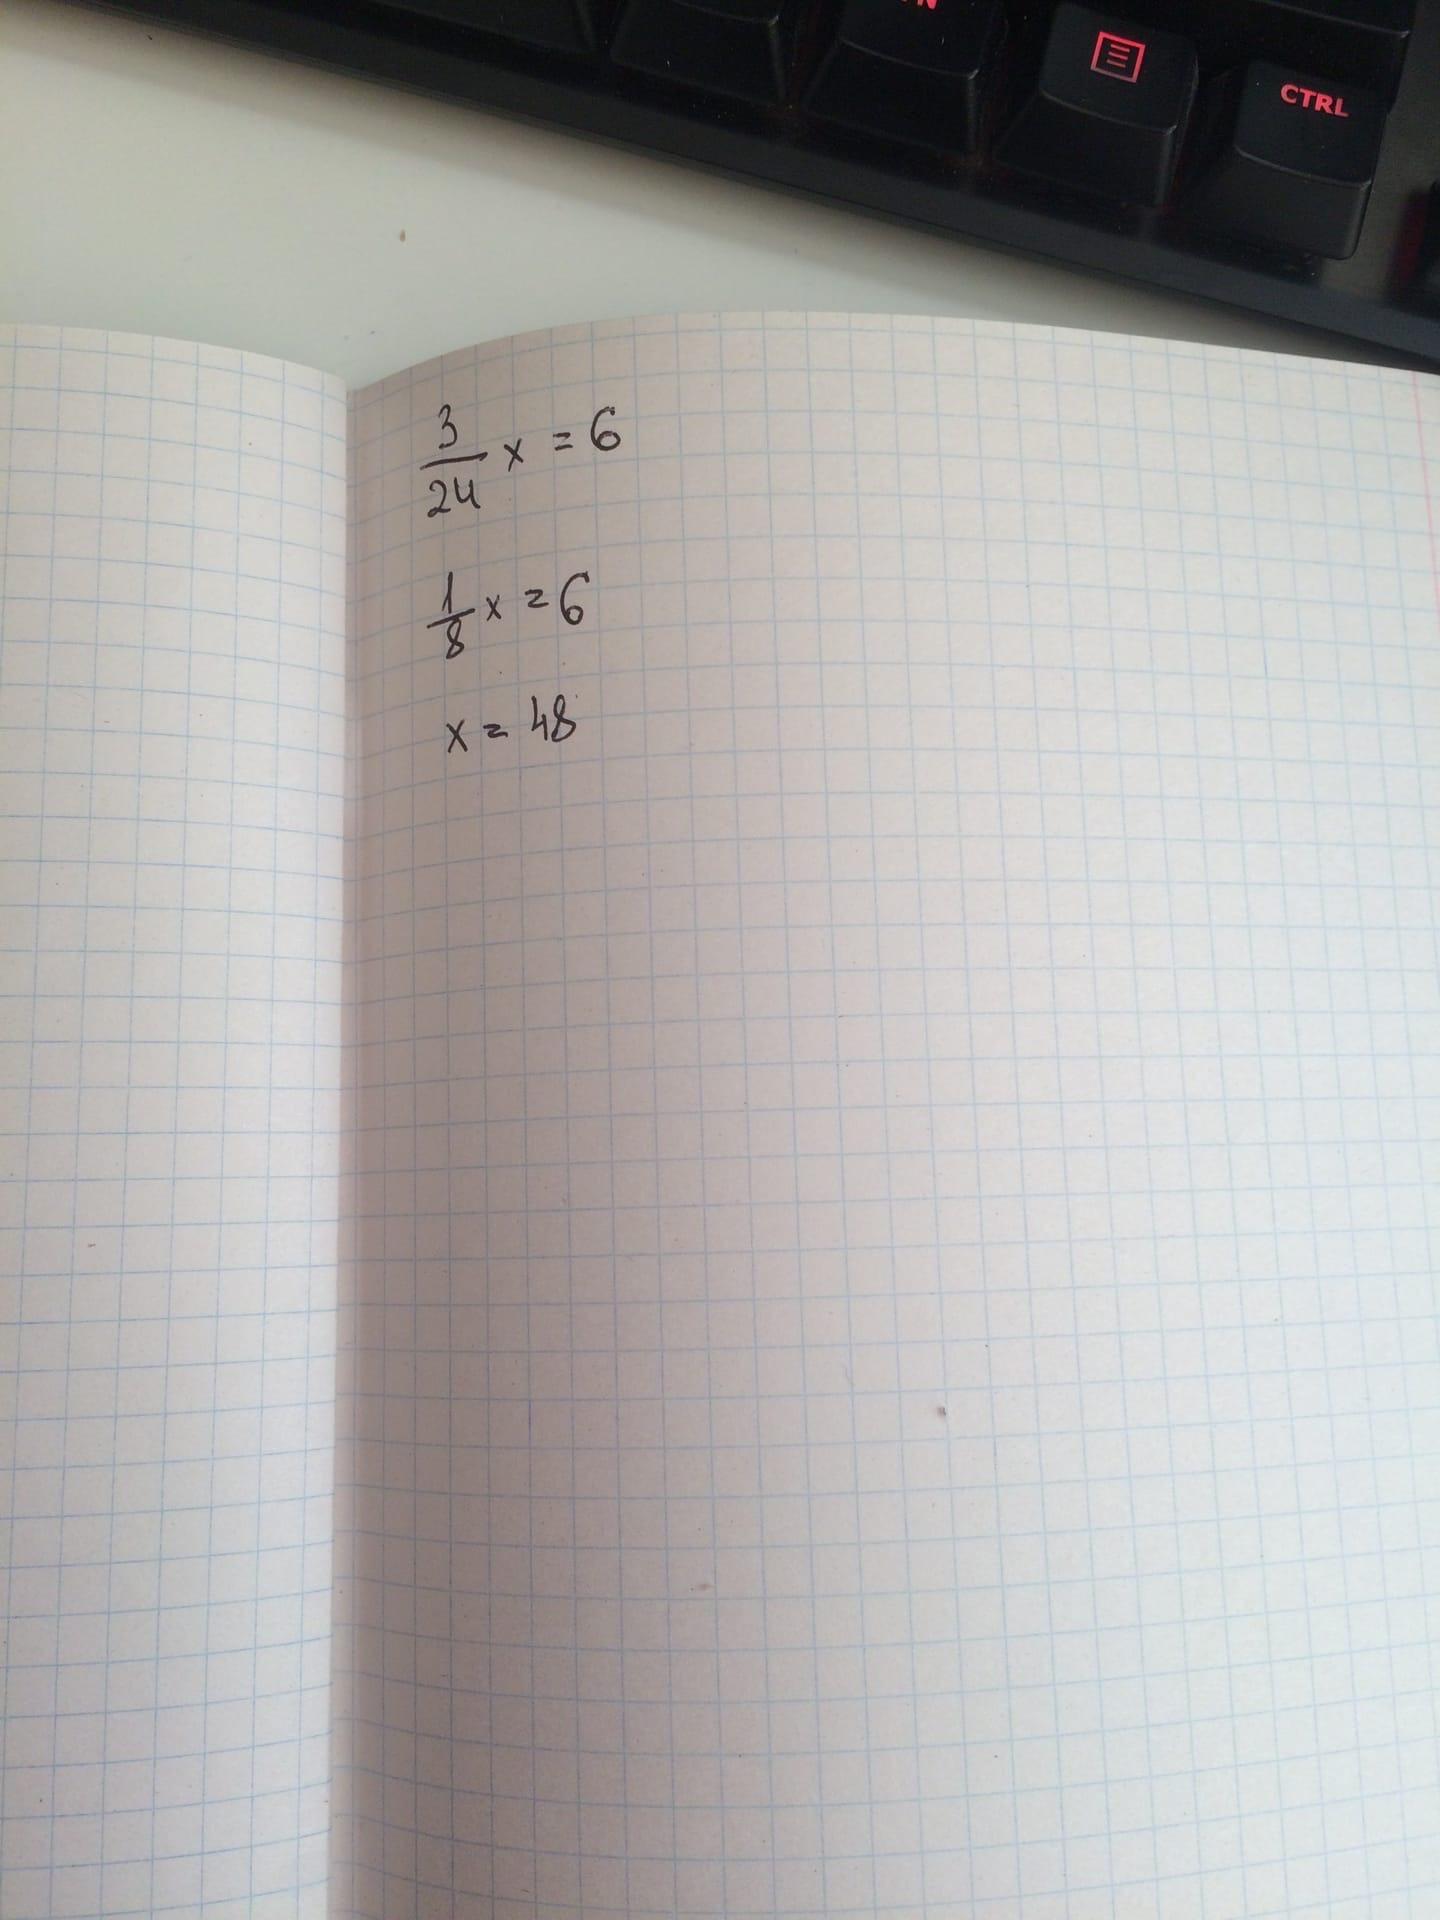 N
CTRL
3/24 x = 6
1/8 x = 6
x = 48